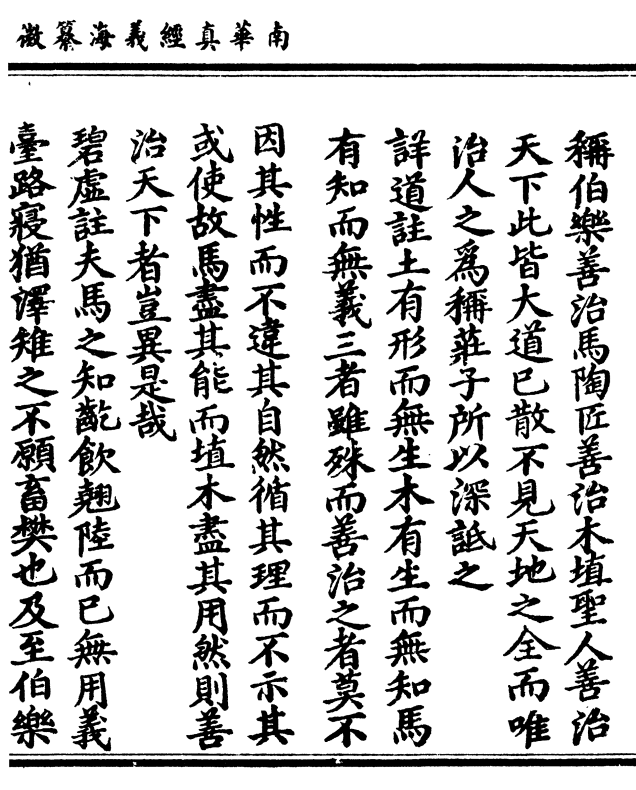 南華真經義海纂微
稱伯樂善治馬陶匠善治木埴聖人善治
天下此皆大道已散不見天地之全而唯
治人之爲稱莊子所以深詆之
詳道註土有形而無生木有生而無知馬
有知而無義三者雖殊而善治之者莫不
因其性而不違其自然循其理而不示其
或使故馬盡其能而埴木盡其用然則善
治天下者豈異是哉
碧虛註夫馬之知齕飲翹陸而已無用義
臺路寢猶澤雉之不願畜樊也及至伯樂